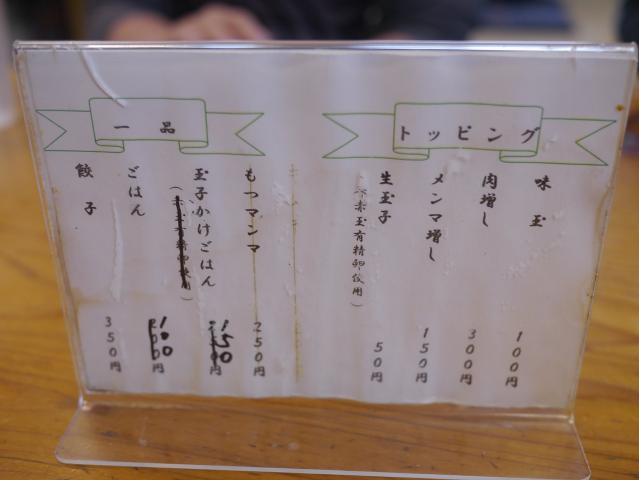 トッピング
味玉 100円
肉増し 300円
メンマ増し 150円
生玉子 50円
赤玉有精卵使用）
一品
もつマンマ 250円
玉子かけごはん 150円
ごはん 100円
餃子 350円